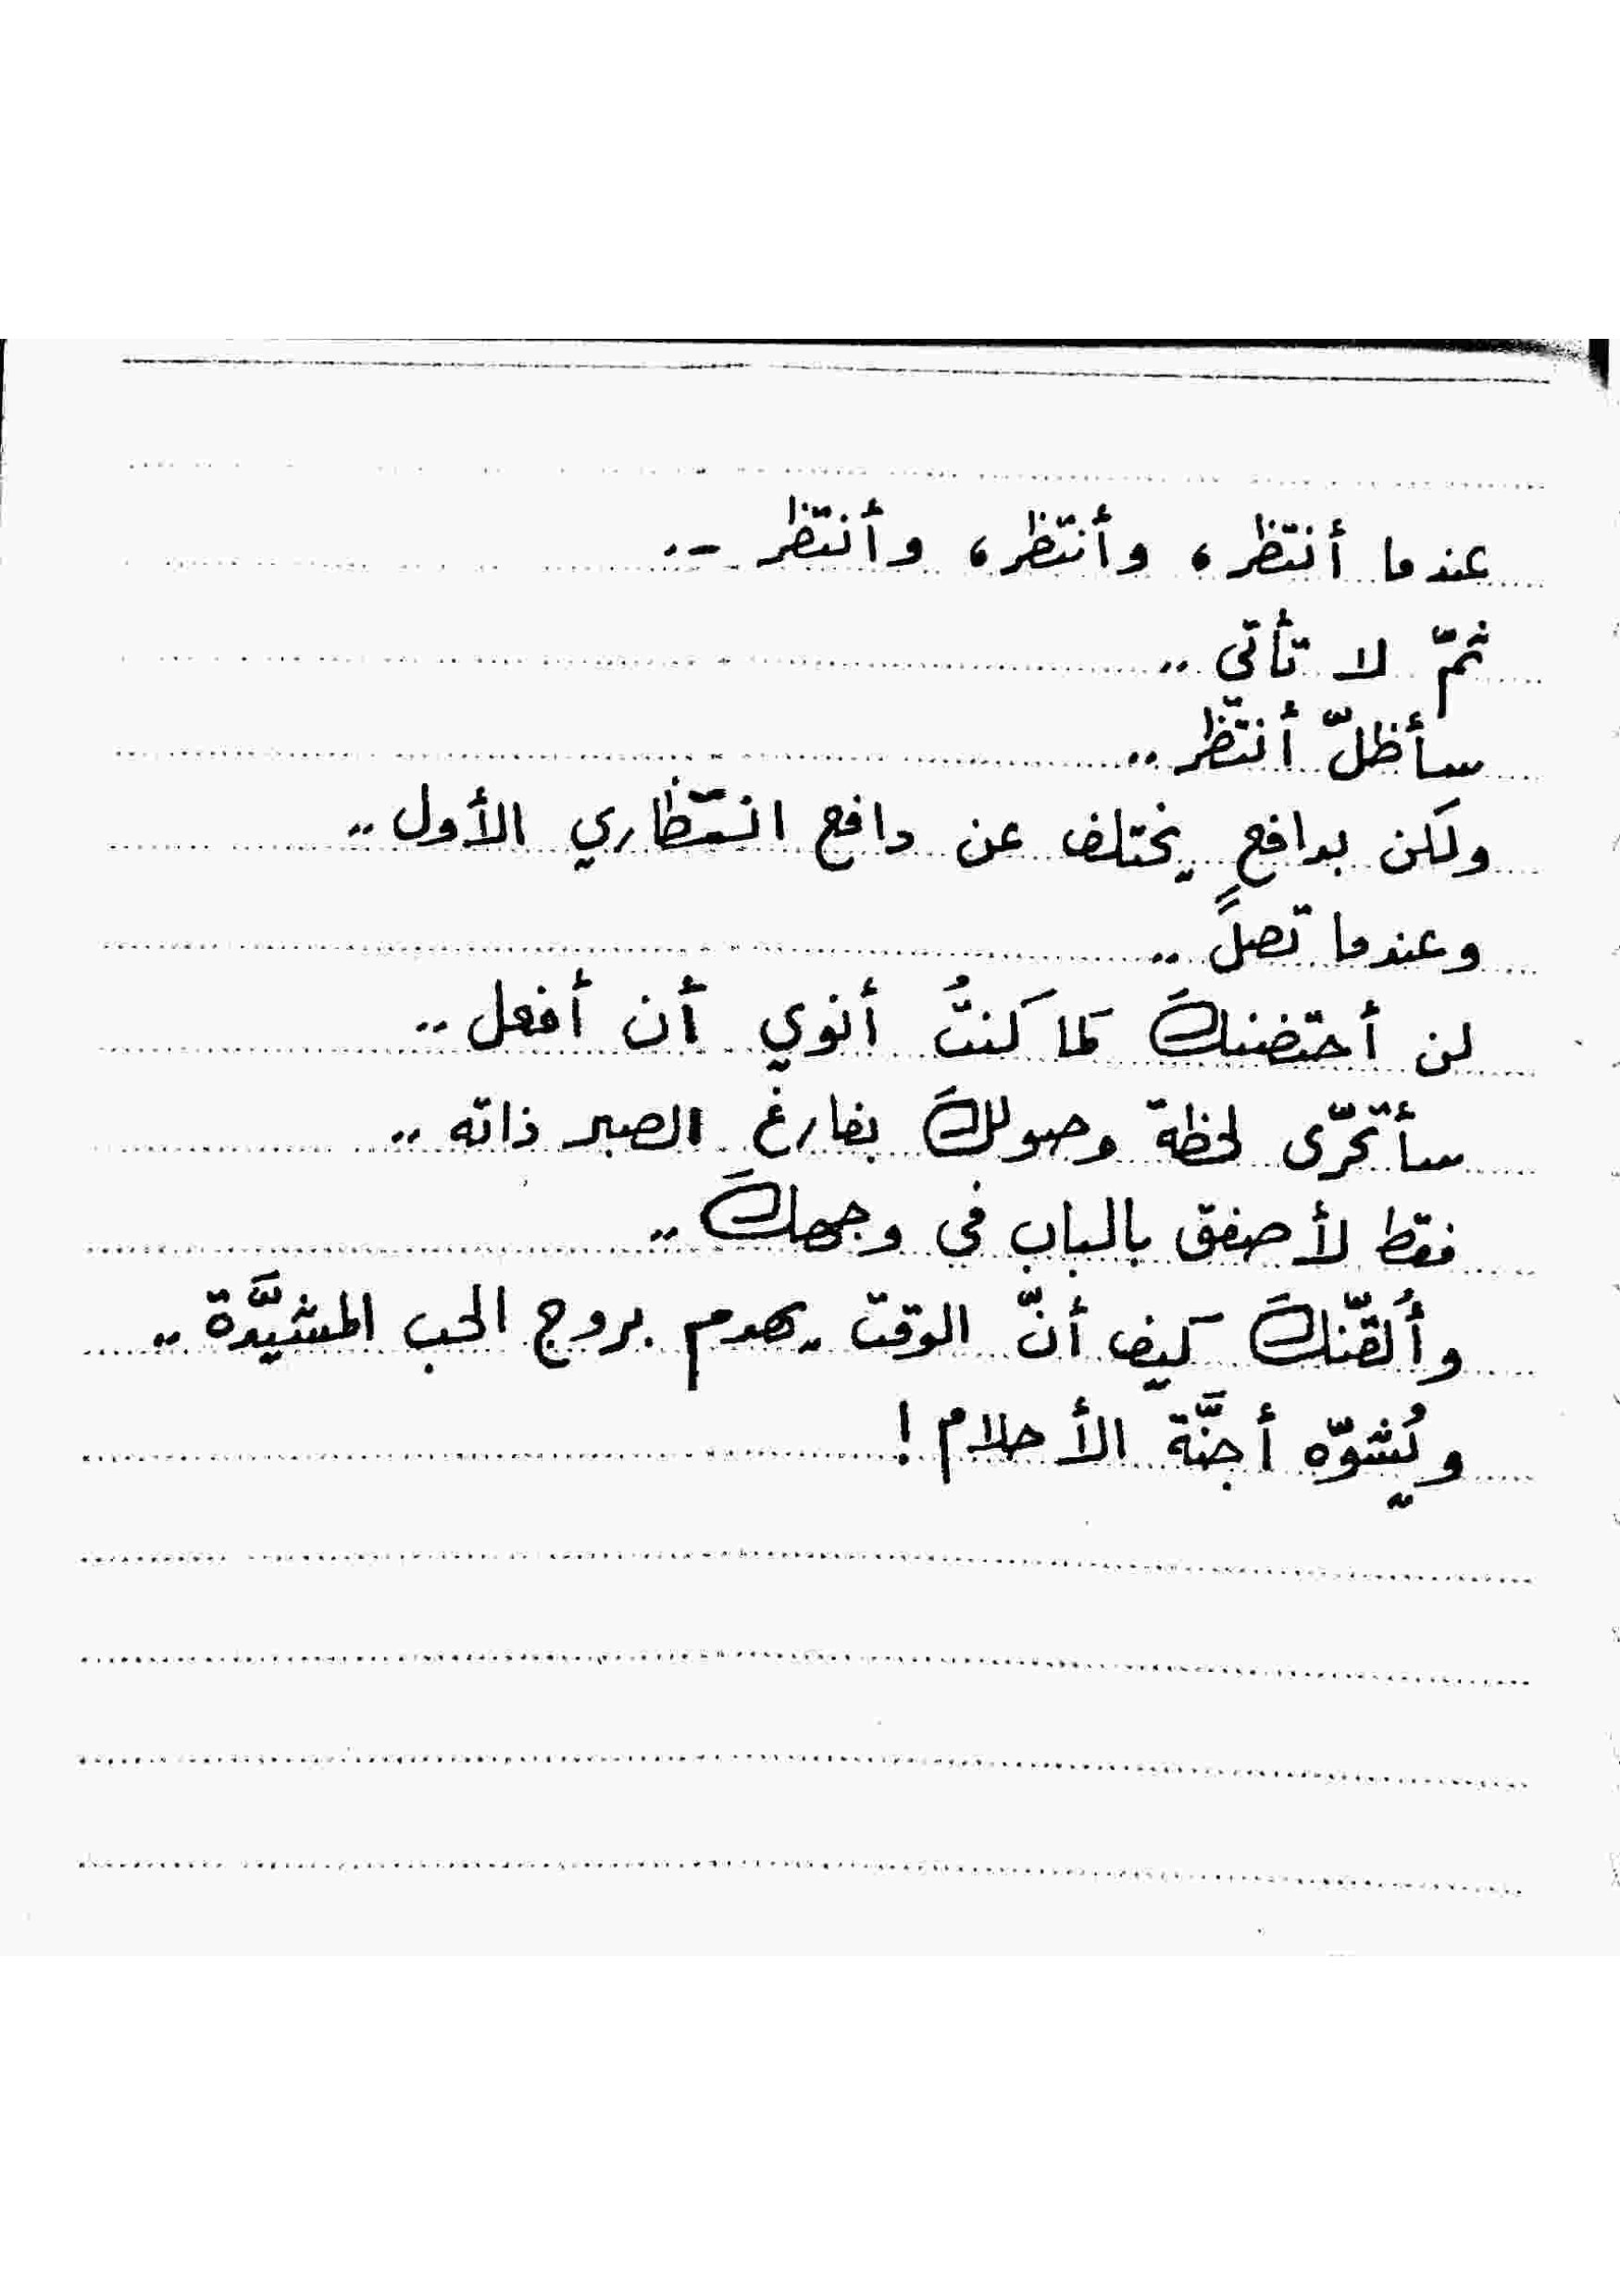 عندما أنتظر، وأنتظر، وأنتظر ..
ثمّ لا تأتي ..
سأظلّ أنتظر ..
ولكن بدافعٍ يختلف عن دافع انتظاري الأول ..
وعندما تصلَ ..
لن أحتضنكَ كما كنتُ أنوي أن أفعل ..
سأتحرّى لحظة وصولكَ بفارغ الصبر ذاته ..
فقط لأصفق بالباب في وجهكَ ..
وأُلقّنكَ كيف أنّ الوقت يهدم بروج الحب المشيَّدة ..
ويُشوّه أجنَّة الأحلام !